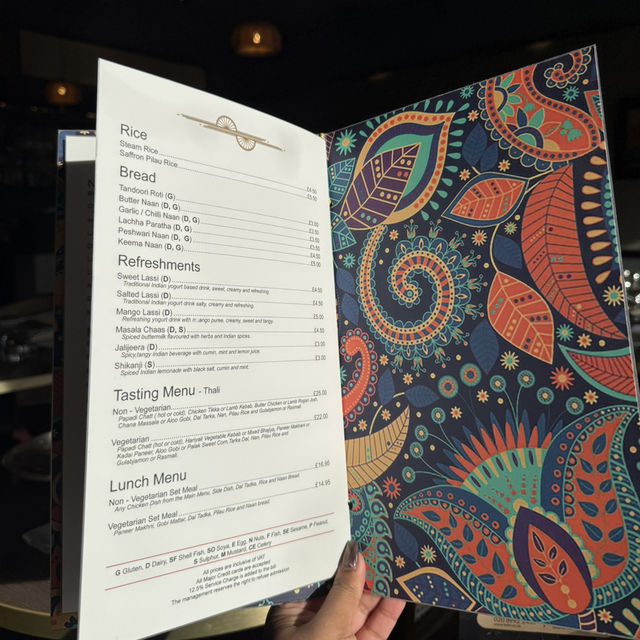 Rice
Steam Rice £4.50
Saffron Pilau Rice £5.50
Bread
Tandoori Roti (G) £3.00
Butter Naan (D, G) £3.50
Garlic / Chilli Naan (D, G) £3.50
Lachha Paratha (D, G) £3.50
Peshwari Naan (D, G) £4.50
Keema Naan (D, G) £5.00
Refreshments
Sweet Lassi (D) £4.50
Traditional Indian yogurt based drink, sweet, creamy and refreshing.
Salted Lassi (D) £4.50
Traditional Indian yogurt drink salty, creamy and refreshing.
Mango Lassi (D) £5.00
Refreshing yogurt drink with mango puree, creamy, sweet and tangy.
Masala Chaas (D, S) £4.50
Spiced buttermilk flavoured with herbs and Indian spices.
Jaljeera (D) £3.00
Spicy, tangy Indian beverage with cumin, mint and lemon juice.
Shikanji (S) £3.00
Spiced Indian lemonade with black salt, cumin and mint.
Tasting Menu - Thali
Non - Vegetarian £25.00
Papadi Chatt ( hot or cold), Chicken Tikka or Lamb Kebab, Butter Chicken or Lamb Rogan Josh,
Chana Massala or Aloo Gobi, Dal Tarka, Nan, Pilau Rice and Gulabjamon or Rasmali.
Vegetarian £22.00
Papadi Chatt (hot or cold), Hariyali Vegetable Kebab or Mixed Bhajiya, Paneer Makhani or
Kadai Paneer, Aloo Gobi or Palak Sweet Corn,Tarka Dal, Nan, Pilau Rice and
Gulabjamon or Rasmali.
Lunch Menu
Non - Vegetarian Set Meal £16.95
Any Chicken Dish from the Main Menu, Side Dish, Dal Tadka, Rice and Naan Bread.
Vegetarian Set Meal £14.95
Paneer Makhni, Gobi Mattar, Dal Tadka, Pilau Rice and Naan bread.
G Gluten, D Dairy, SF Shell Fish, SO Soya, E Egg, N Nuts, F Fish, SE Sesame, P Peanut,
S Sulphur, M Mustard, CE Celery
All prices are inclusive of VAT
All Major Credit cards are accepted
12.5% Service Charge is added to the bill
The management reserves the right to refuse admission